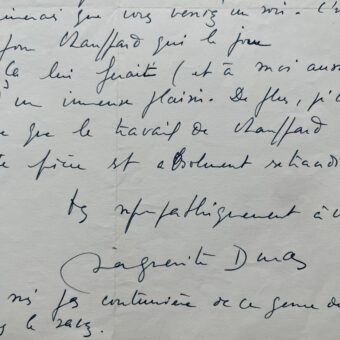 que vous veniez un soir.
Chauffard qui le joue
Ça lui ferait (et à moi aussi
un immense plaisir. De plus, j'
que le travail de Chauffard
est absolument
sympathiquement à v
Marguerite Duras
pas coutumière de ce genre de
le savez.